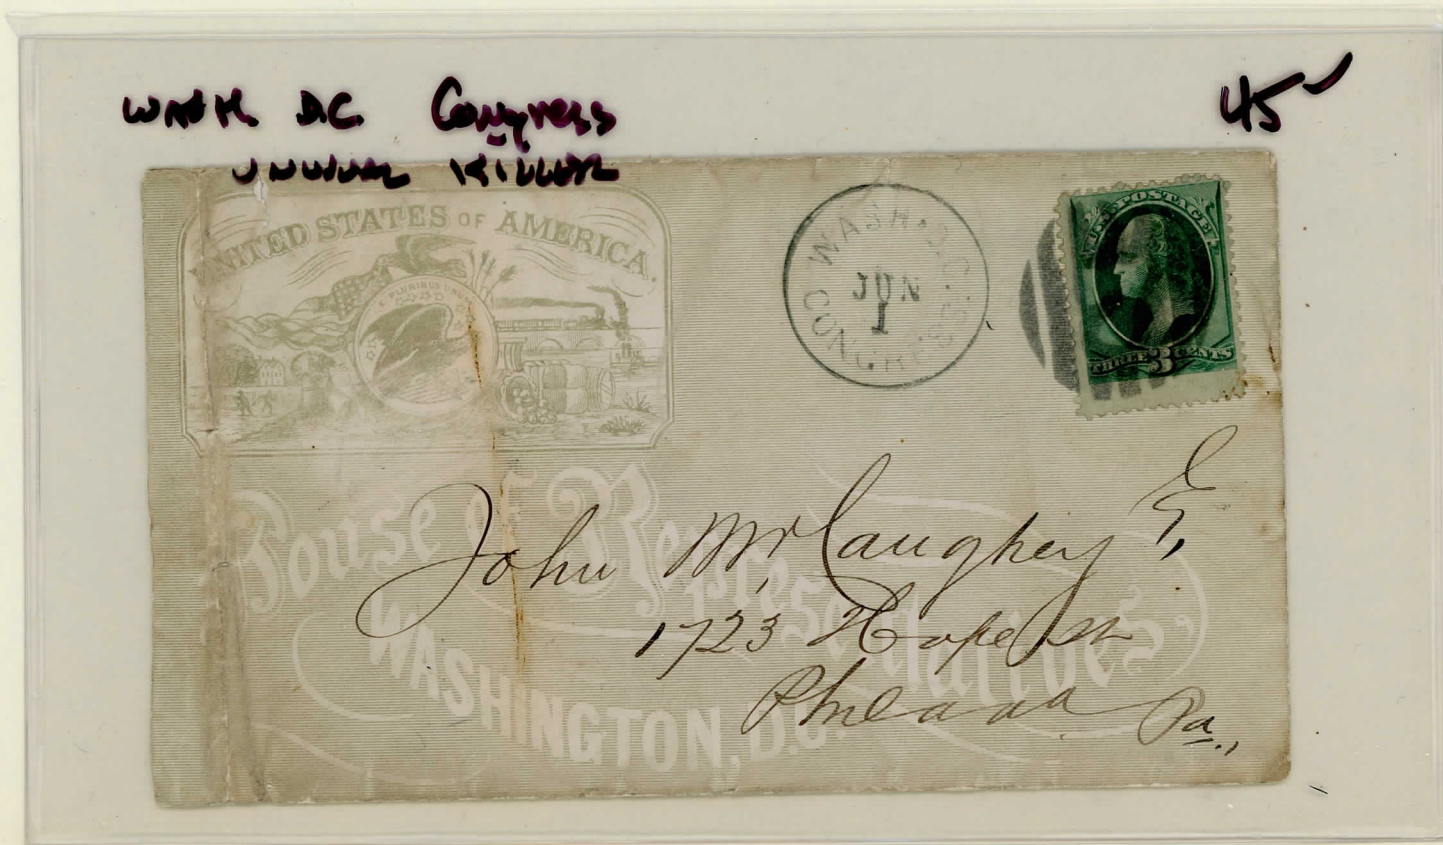 WASH. D.C. Congress
45
UNUSUAL KILLER
UNITED STATES OF AMERICA.
E PLURIBUS UNUM
WASH. D.C.
JUN
1
CONGRESS
U.S. POSTAGE
THREE 3 CENTS
House of Representatives
WASHINGTON, D.C.
John McCaughey
1723 Hope St
Philada Pa.,